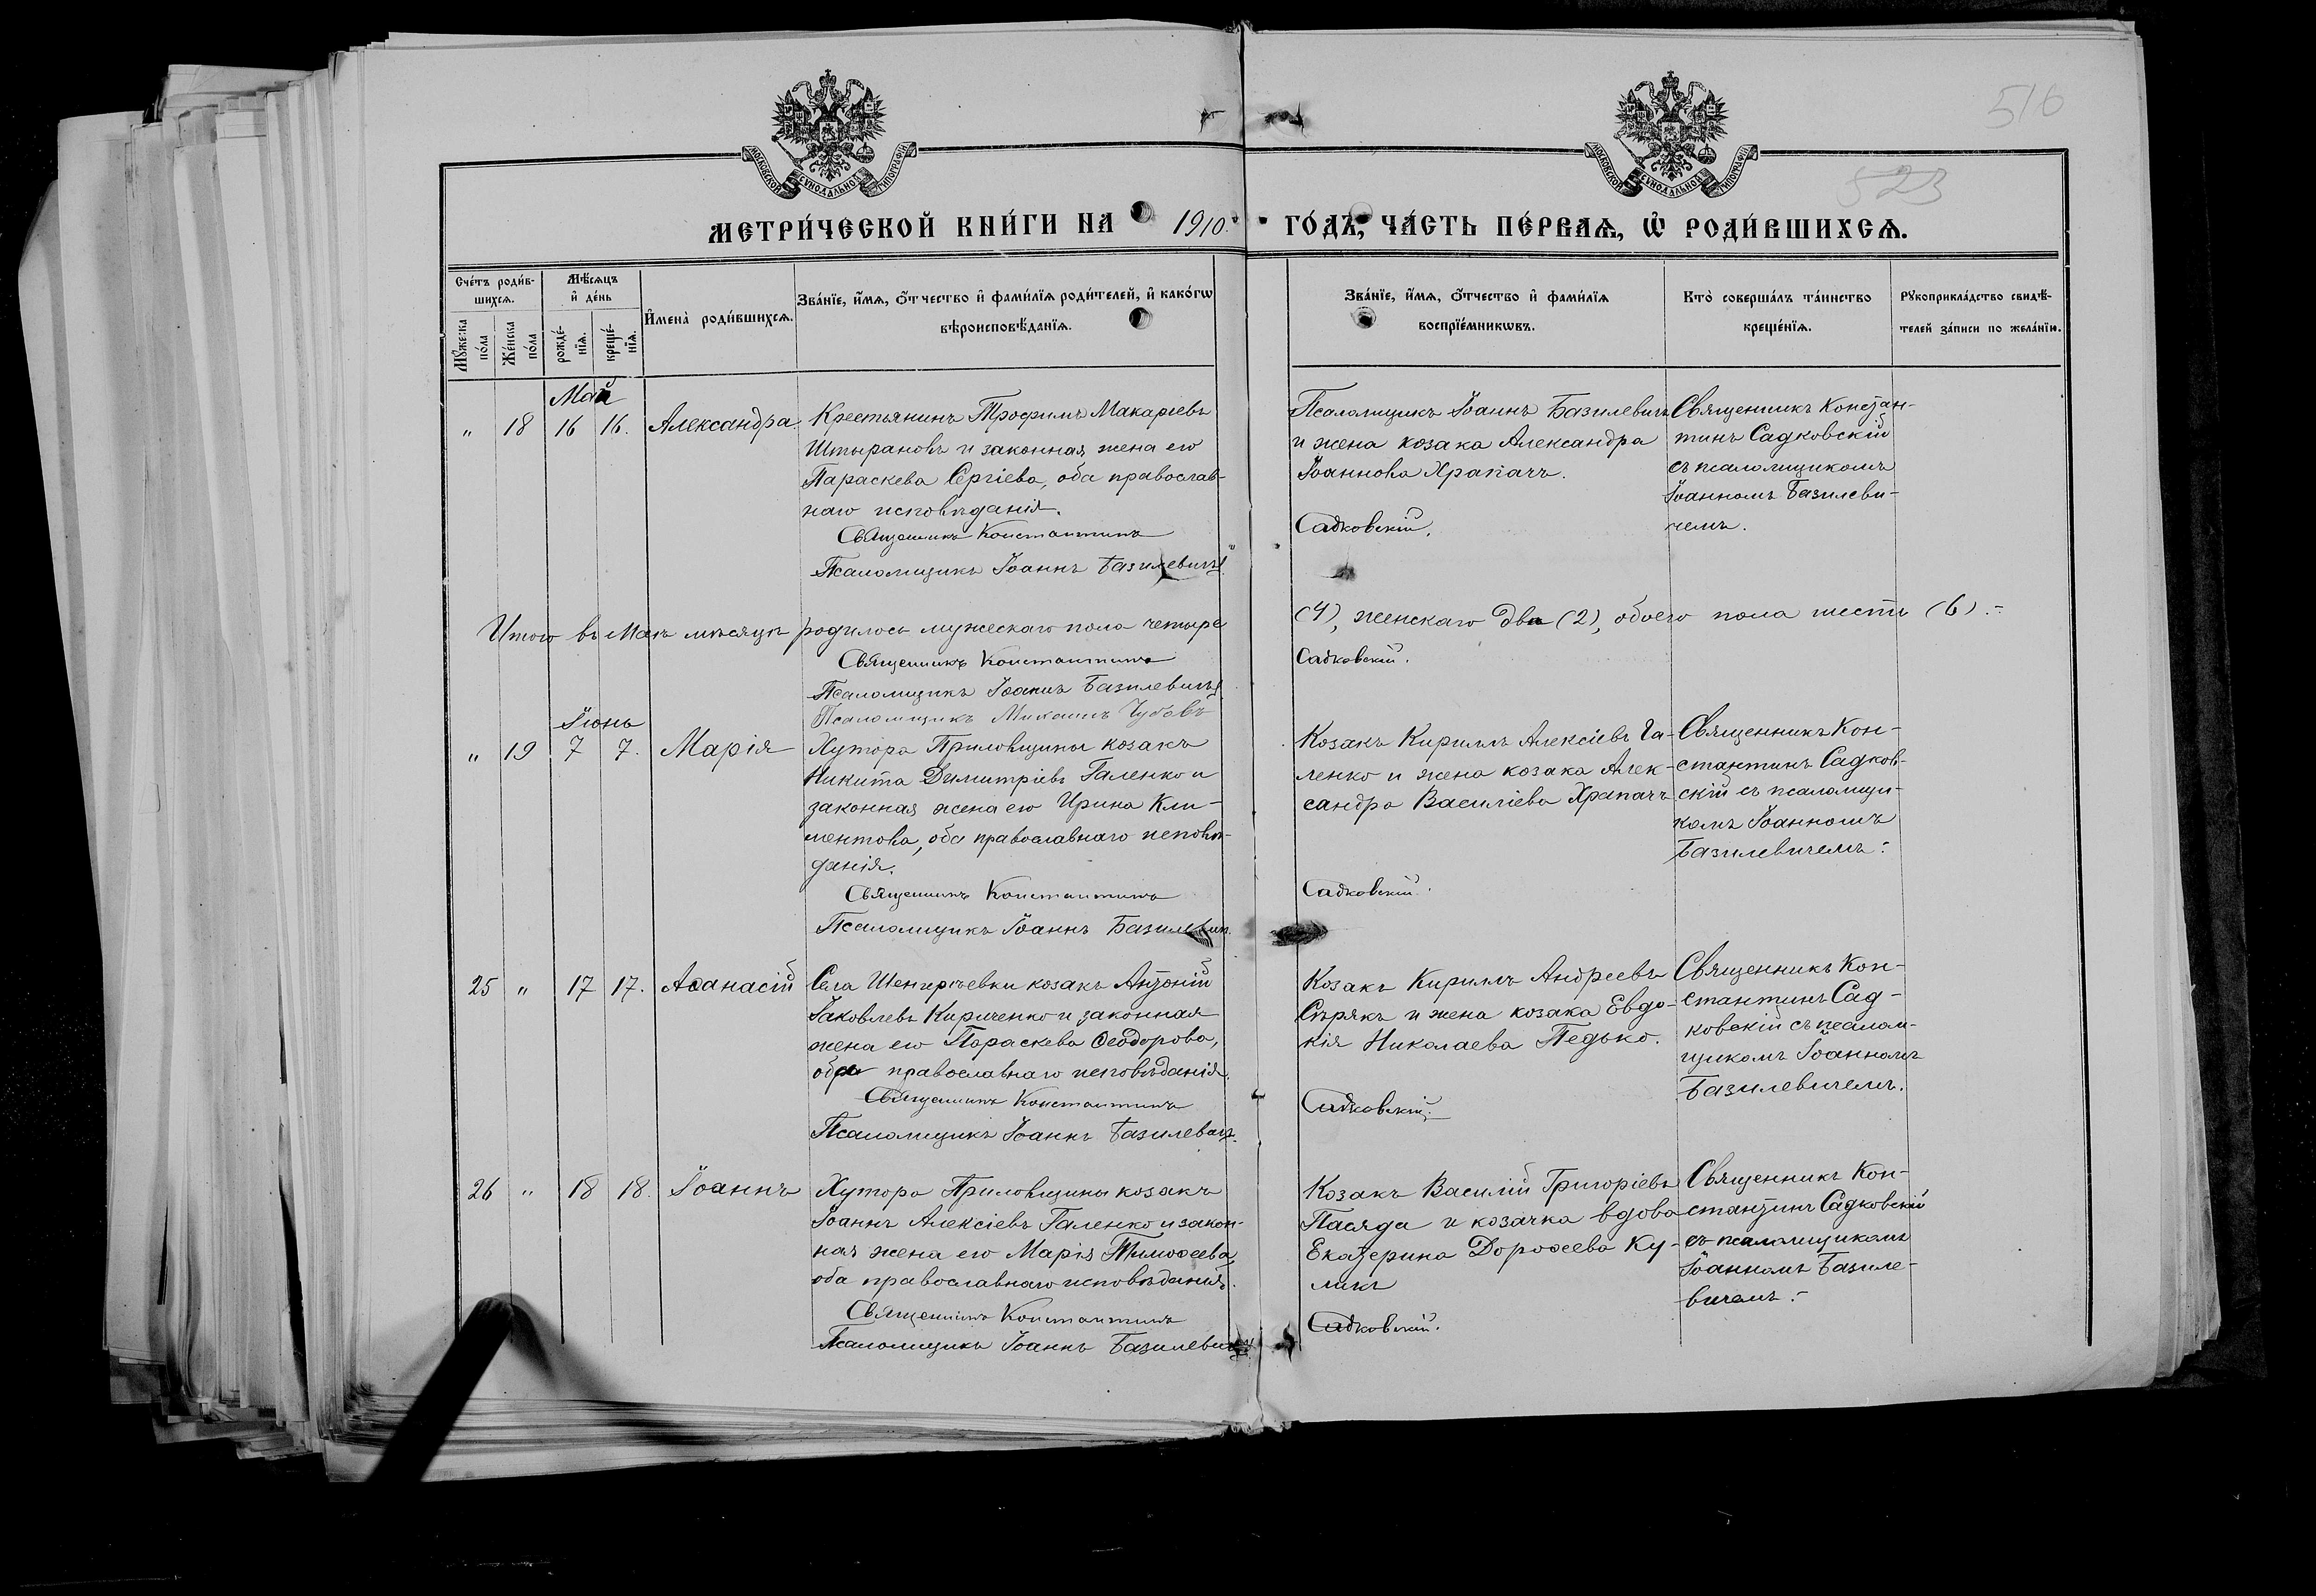 516
523
МОСКОВСКОЙ СѴНОДАЛЬНОЙ ТИПОГРАФІИ
МОСКОВСКОЙ СѴНОДАЛЬНОЙ ТИПОГРАФІИ
МЕТРИ́ЧЕСКОЙ КНИ́ГИ НА 1910 ГО́ДЪ, ЧА́СТЬ ПЕ́РВАѦ, Ѡ҆ РОДИ́ВШИХСѦ.
Сче́тъ роди́в-
шихсѧ.
Мꙋ́жеска по́ла
Же́нска по́ла
Мѣ́сѧцъ
и҆ де́нь
рожде́-
нїѧ.
креще́-
нїѧ.
И҆мена̀ роди́вшихсѧ.
Зва́нїе, и҆́мѧ, ѻ҆́тчество и҆ фами́лїѧ роди́телей, и҆ како́гѡ
вѣроисповѣ́данїѧ.
Зва́нїе, и҆́мѧ, ѻ҆́тчество и҆ фами́лїѧ
воспрїе́мникѡвъ.
Кто̀ соверша́лъ та́инство
креще́нїѧ.
Рꙋкоприкла́дство свидѣ́-
телей за́писи по жела́нїю.
Май
" 18 16 16. Александра.
Крестьянинъ Трофимъ Макаріевъ
Штырановъ и законная жена его
Параскева Сергіева, оба православ-
наго исповѣданія.
Священникъ Константинъ
Псаломщикъ Іоаннъ Базилевичъ
Псаломщикъ Іоаннъ Базилевичъ
и жена козака Александра
Іоаннова Храпачъ.
Садковскій.
Священникъ Констан-
тинъ Садковскій
съ псаломщикомъ
Іоанномъ Базилеви-
чемъ.
Итого въ Маѣ мѣсяцѣ родилось мужескаго пола четыре (4), женскаго два (2), обоего пола шесть (6).
Священникъ Константинъ Садковскій.
Псаломщикъ Іоаннъ Базилевичъ
Псаломщикъ Михаилъ
Іюнь
" 19 7 7. Марія
Хутора Приловщины козакъ
Никита Димитріевъ Галенко и
законная жена его Ирина Кли-
ментова, оба православнаго исповѣ-
данія.
Священникъ Константинъ
Псаломщикъ Іоаннъ Базилевич
Козакъ Кириллъ Алексіевъ Га-
ленко и жена козака Алек-
сандра Василіева Храпачъ
Садковскій.
Священникъ Кон-
стантинъ Садков-
скій съ псаломщи-
комъ Іоанномъ
Базилевичемъ.
25 " 17 17. Аѳанасій
Села козакъ Антоній
Іаковлевъ Кириченко и законная
жена его Параскева Ѳеодорова,
оба православнаго исповѣданія.
Священникъ Константинъ
Псаломщикъ Іоаннъ Базилевичъ.
Козакъ Кириллъ Андреевъ
Сѣрякъ и жена козака Евдо-
кія Николаева Педько.
Садковскій.
Священникъ Кон-
стантинъ Сад-
ковскій съ псалом-
щикомъ Іоанномъ
Базилевичемъ.
26 " 18 18. Іоаннъ
Хутора Приловщины козакъ
Іоаннъ Алексіевъ Галенко и закон-
ная жена его Марія Тимоѳеева,
оба православнаго исповѣданія.
Священникъ Константинъ
Псаломщикъ Іоаннъ Базилевичъ
Козакъ Василій Григоріевъ
Пасяда и козачка вдова
Екатерина Дороѳеева Ку-
ликъ
Садковскій.
Священникъ Кон-
стантинъ Садковскій
съ псаломщикомъ
Іоанномъ Базиле-
вичемъ.